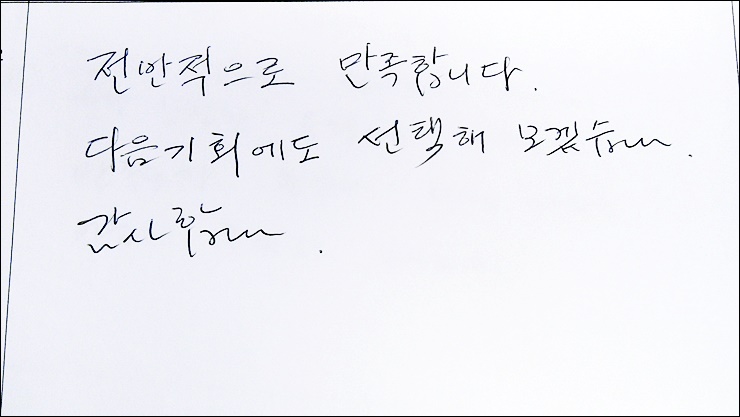 전반적으로 만족합니다.
다음기회에도 선택해 보겠습니다.
감사합니다.